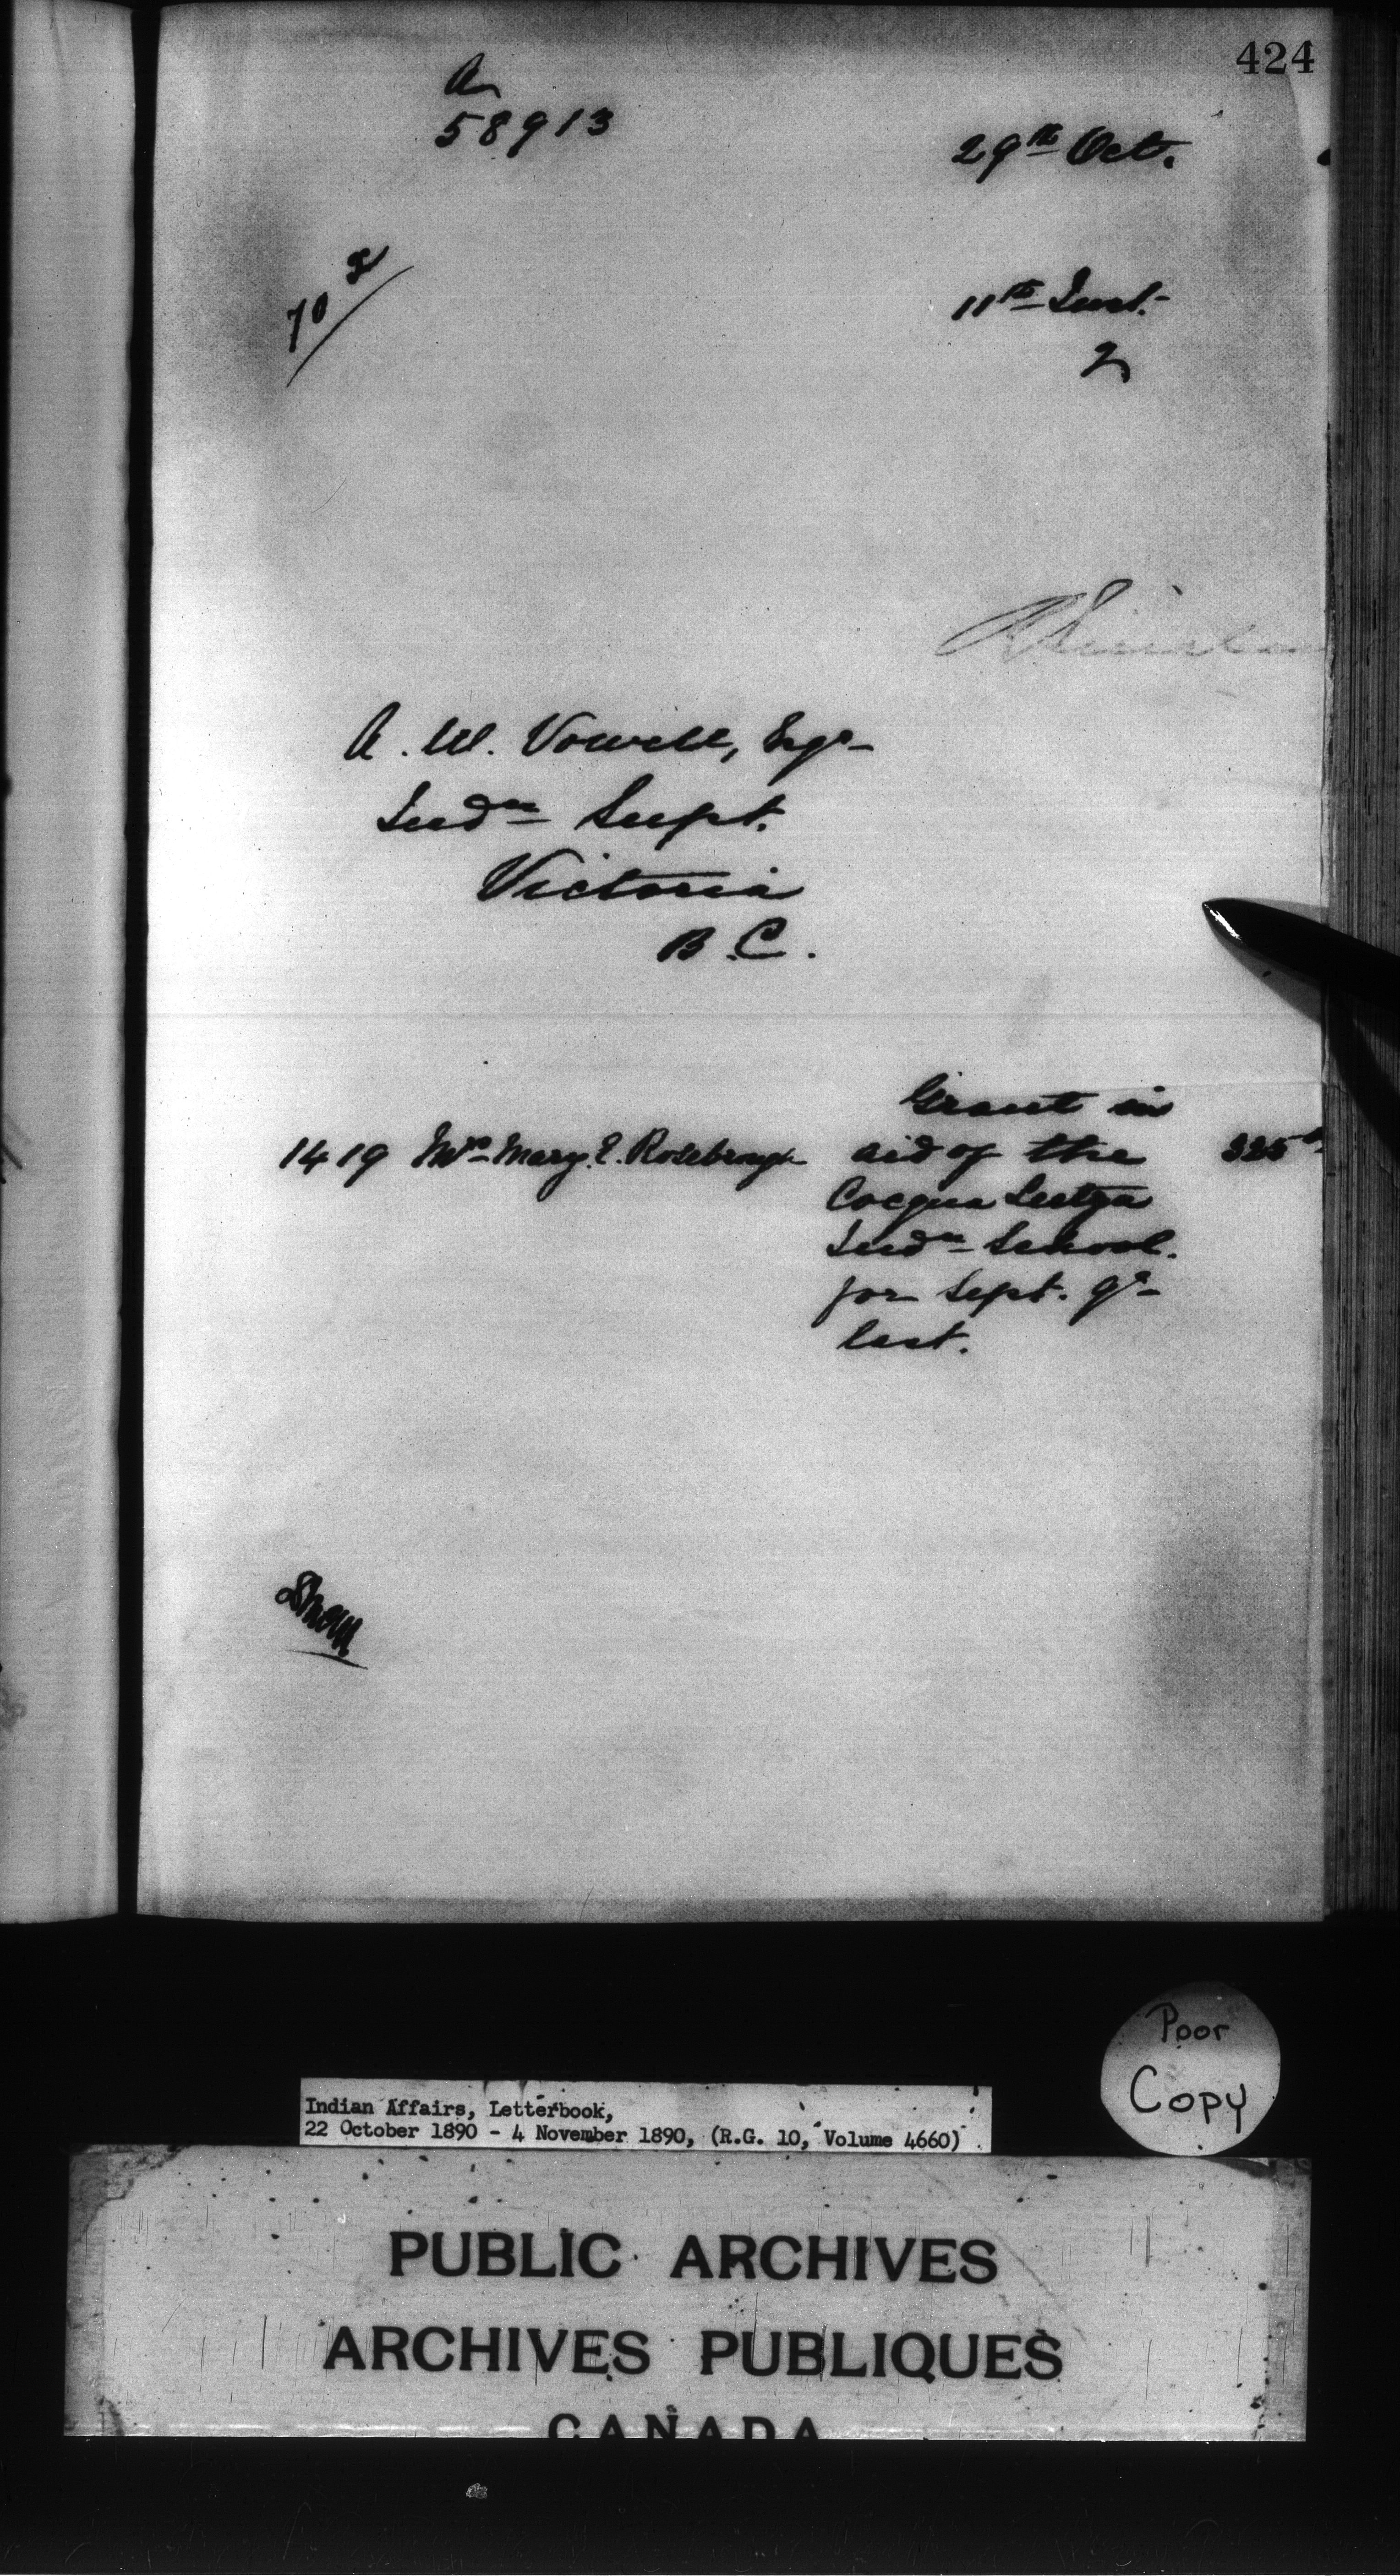 424
A
58913
29th Oct.
70
11th Inst.
2
A. W. Vowell, Esqr
Indn Supt.
Victoria
B.C.
Grant in
1419 Mrs Mary E. Rosebrugh aid of the 325
Cocqua Leetza
Indn School.
for Sept. qr
last.
Poor
Copy
Indian Affairs, Letterbook,
22 October 1890 - 4 November 1890, (R.G. 10, Volume 4660)
PUBLIC ARCHIVES
ARCHIVES PUBLIQUES
CANADA